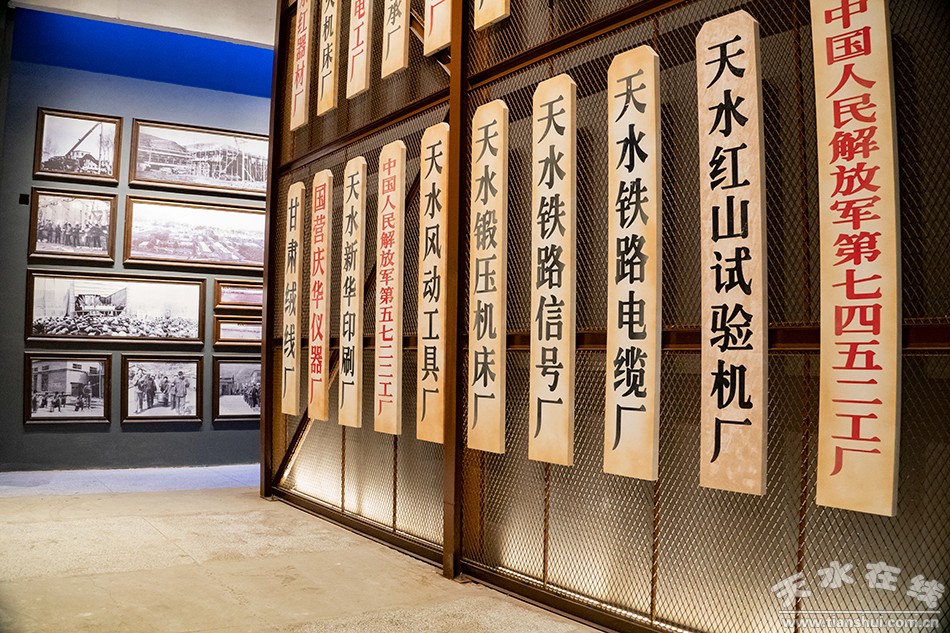 红器材厂
机床厂
电工厂
承厂
厂
甘肃绒线厂
国营庆华仪器厂
天水新华印刷厂
中国人民解放军第五七二二工厂
天水风动工具厂
天水锻压机床厂
天水铁路信号厂
天水铁路电缆厂
天水红山试验机厂
中国人民解放军第七四五二工厂
天水在线
www.tianshui.com.cn